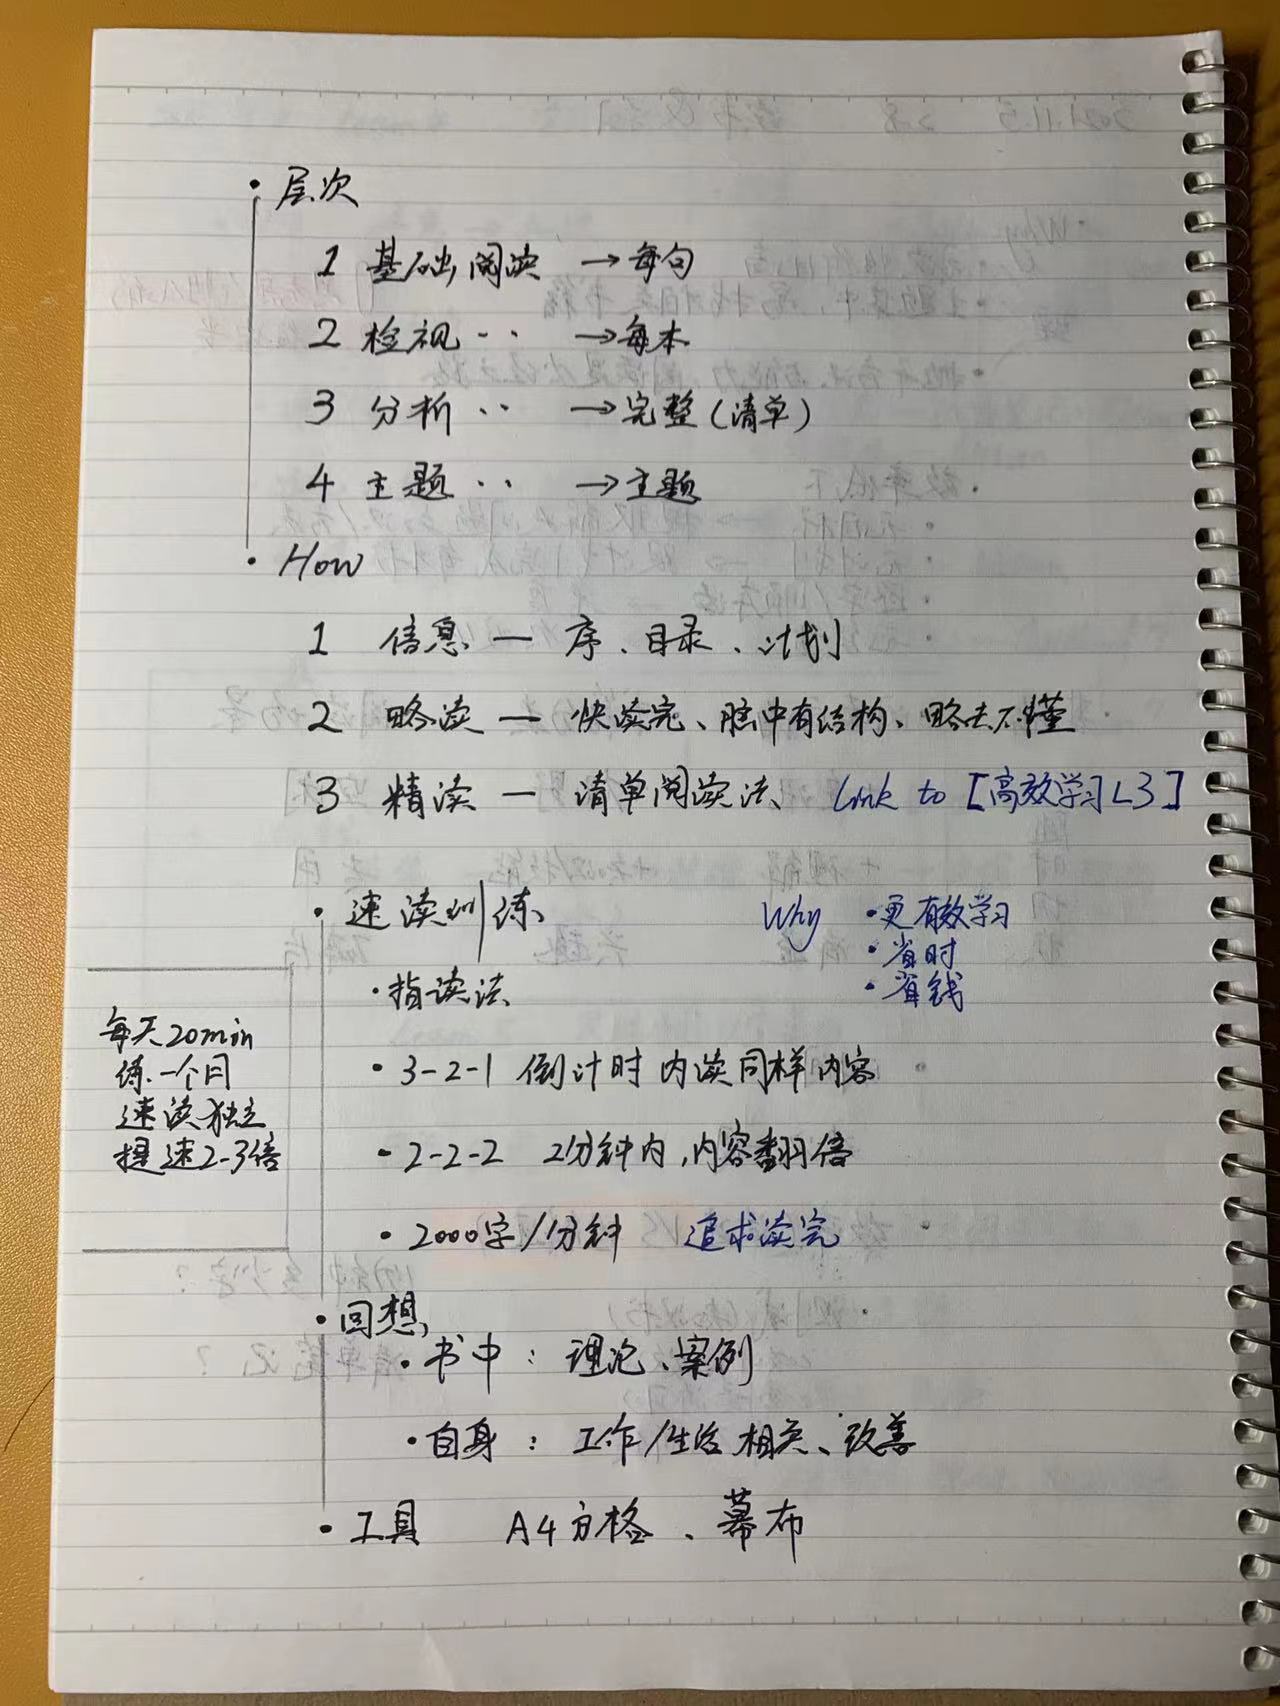 · 层次
1 基础阅读 → 每句
2 检视 ·· → 每本
3 分析 ·· → 完整(清单)
4 主题 ·· → 主题
· How
1 信息 — 序、目录、计划
2 略读 — 快读完、脑中有结构、略去不懂
3 精读 — 清单阅读法、 Link to [高效学习L3]
· 速读训练
Why · 更有效学习
· 省时
· 省钱
· 指读法
· 3-2-1 倒计时内读同样内容
· 2-2-2 2分钟内,内容翻倍
· 2000字/分钟 追求读完
每天20min
练一个月
速读独立
提速2-3倍
· 回想
· 书中: 理论、案例
· 自身: 工作/生活相关、改善
· 工具 A4方格、幕布